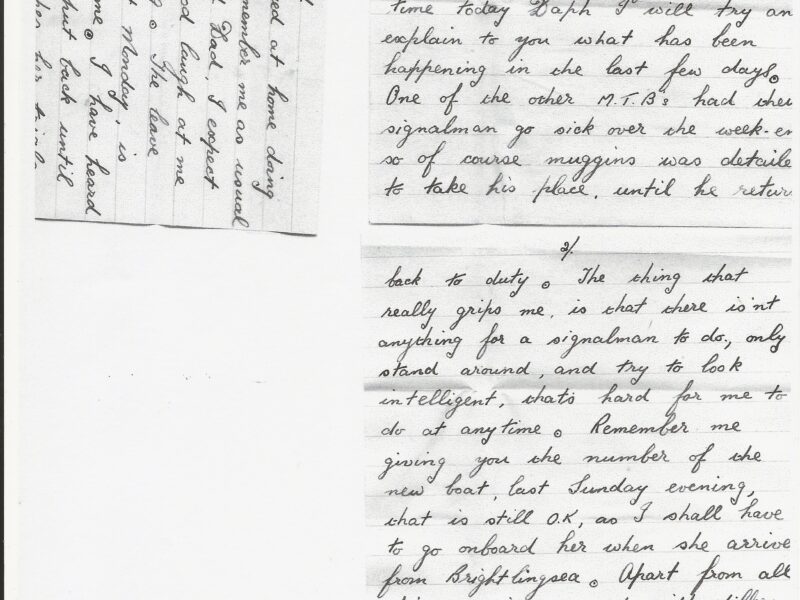 time today Daph I will try an
explain to you what has been
happening in the last few days.
One of the other M.T.B's had thei
signalman go sick over the week-en
so of course muggins was detaile
to take his place, until he return
2/.
back to duty. The thing that
really grips me, is that there is'nt
anything for a signalman to do, only
stand around, and try to look
intelligent, that's hard for me to
do at anytime. Remember me
giving you the number of the
new boat, last Sunday evening,
that is still O.K, as I shall have
to go onboard her when she arrive
from Brightlingsea. Apart from all
ed at home doing
member me as usual
Dad, I expect
od laugh at me
. The leave
Monday, is
me. I have heard
hut back until